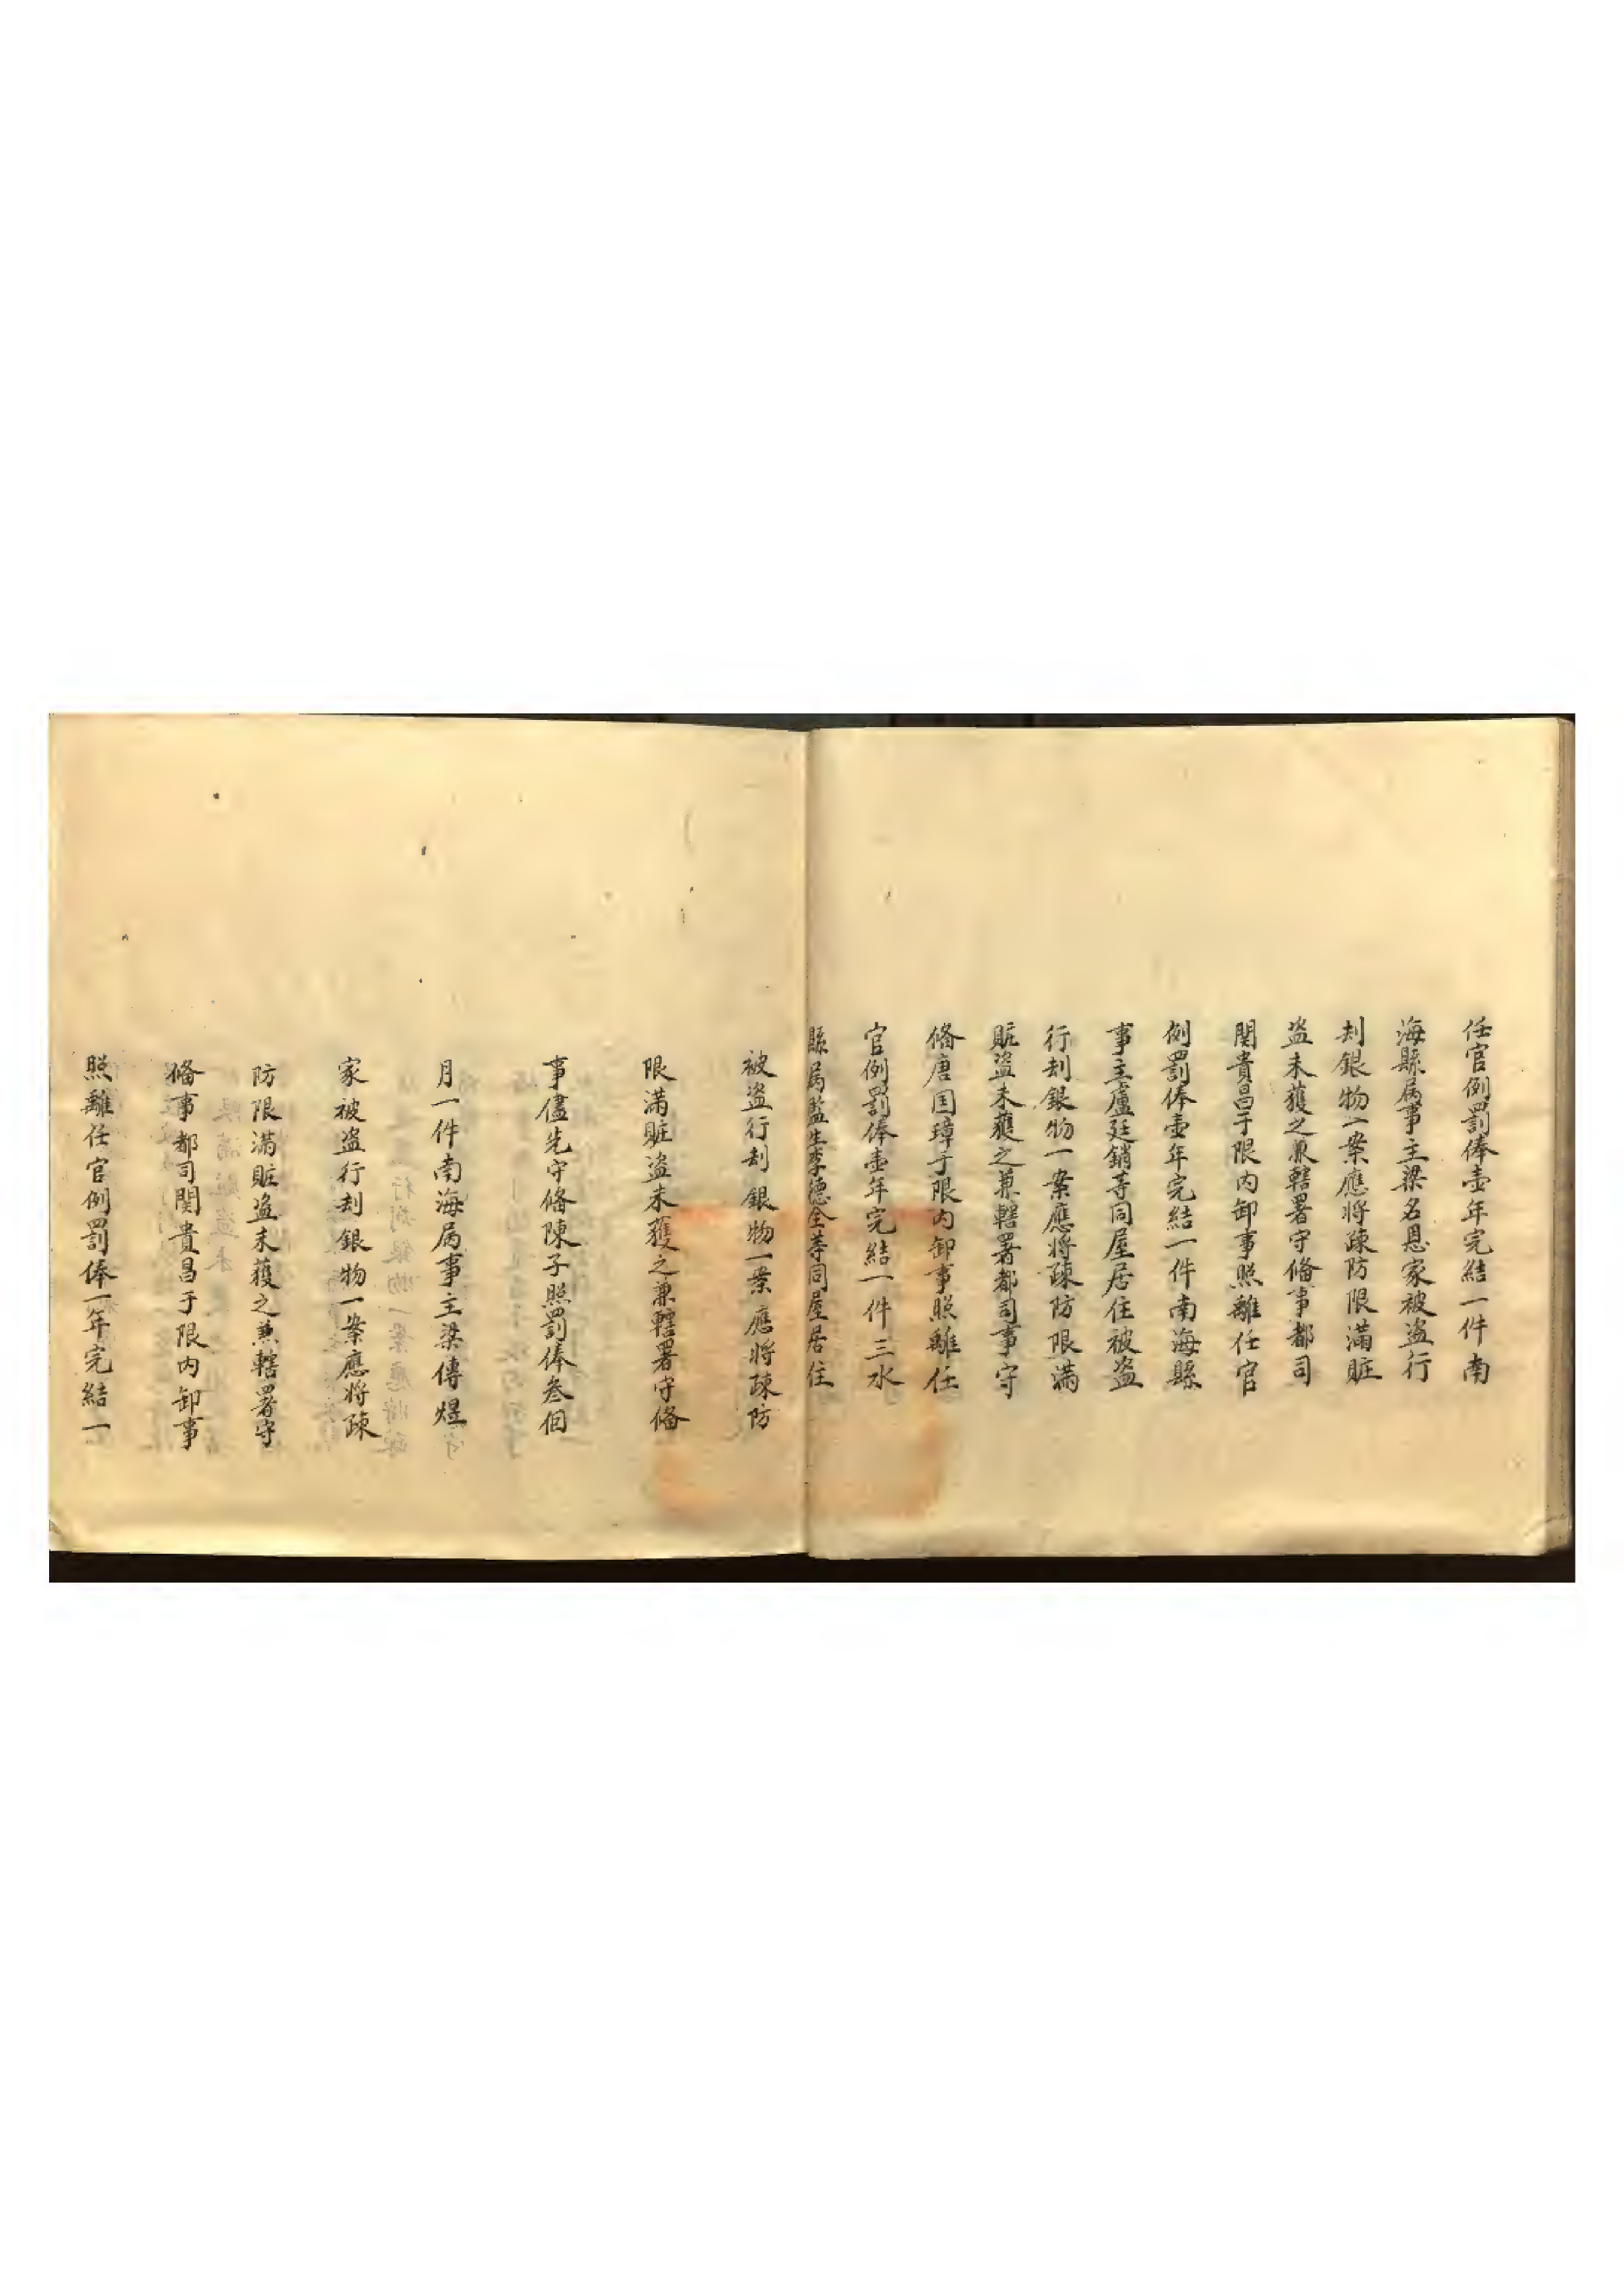 任官例罰俸壹年完結一件南
海縣属事主梁名恩家被盗行
刦銀物一案應将疎防限滿賍
盗未獲之兼轄署守俻事都司
関貴昌于限内卸事照離任官
例罰俸壹年完結一件南海縣
事主盧廷銷等同屋居住被盗
行刦銀物一案應将疎防限滿
賍盗未獲之兼轄署都司事守
俻唐国璋于限内卸事照離任
官例罰俸壹年完結一件三水
縣属監生李德全等同屋居住
被盗行刦銀物一案應将疎防
限滿賍盗未獲之兼轄署守俻
事儘先守俻陳子照罰俸叁個
月一件南海属事主梁傳煜
家被盗行刦銀物一案應将疎
防限滿賍盗未獲之兼轄署守
俻事都司関貴昌于限内卸事
照離任官例罰俸一年完結一